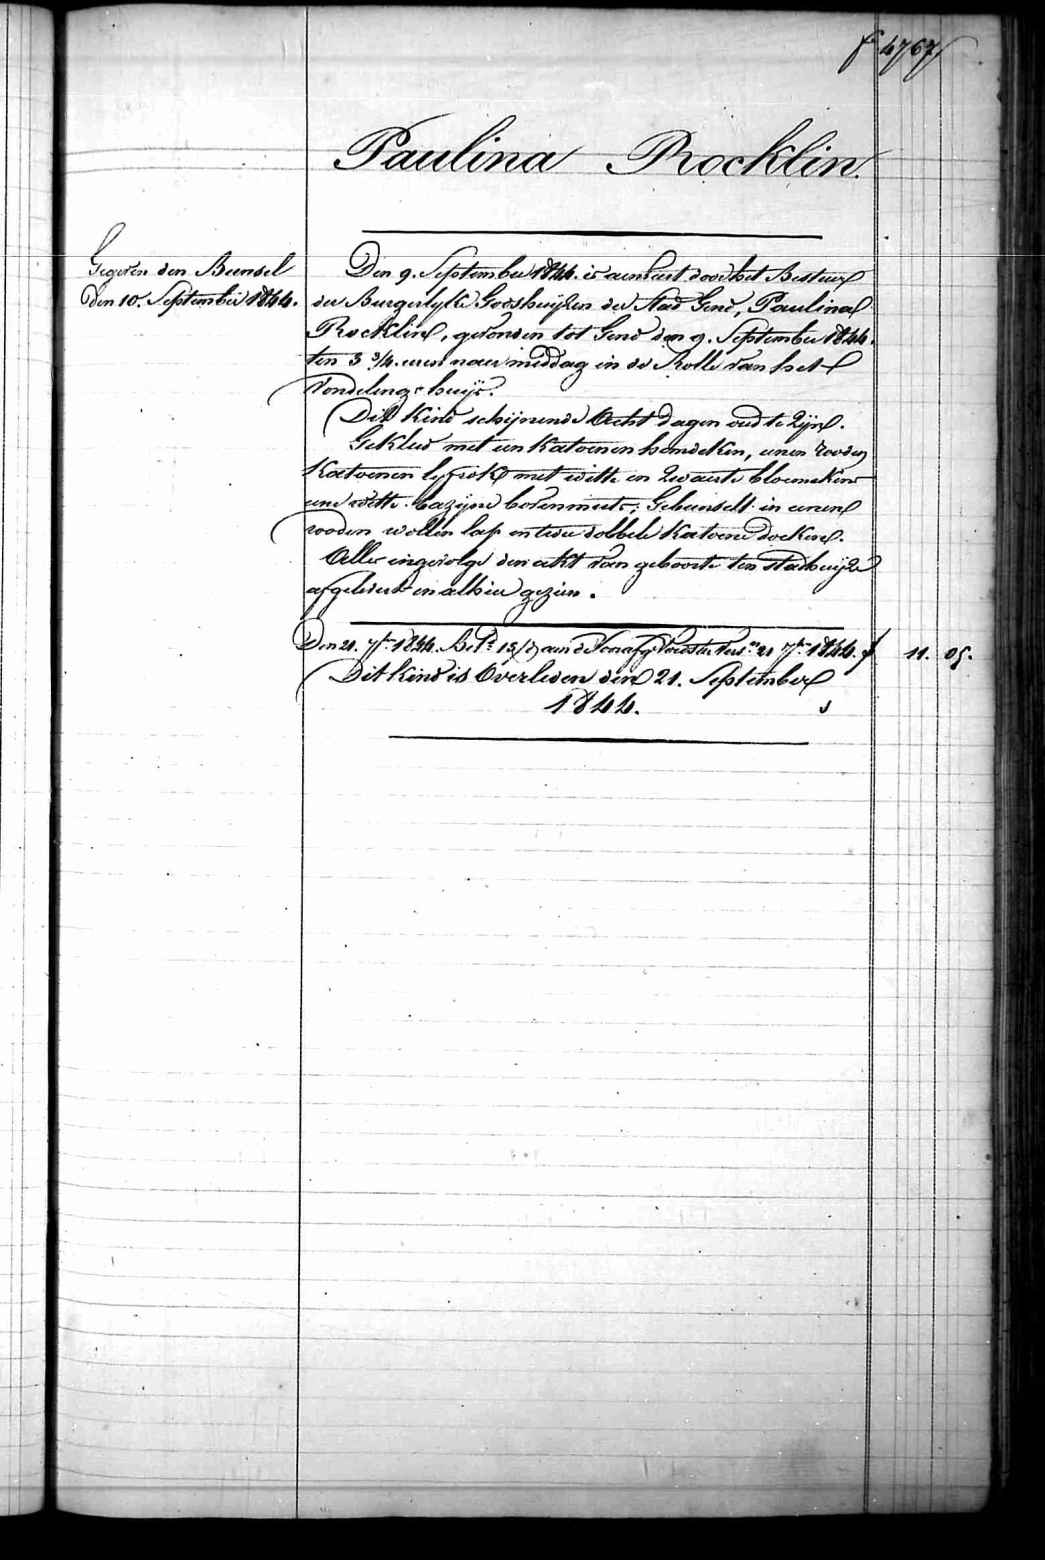 f° 4767
Paulina Rocklin.
Gegeven den Bunsel
den 10. September 1844.
Den 9. September 1844. is aenveert door het Bestuer
der Burgerlyke Godshuijzen der Stad Gend, Paulina
Rocklin, gevonden tot Gend den 9. September 1844.
ten 3 3/4. uren naer middag in de Rolle van het
Vondelings-huijs.
Dit Kind schijnende Acht dagen oud te Zijn.
Gekleed met een Katoenen hemdeken, eenen rooden
Katoenen lyfrok met witte en Zwarte bloemekens
eene witte bazijne bovenmuts; Gebunselt in eenen
rooden wollen lap en twee dobbele Katoene doeken.
Alles ingevolge den akt van geboorte ten stadhuijze
afgeleverd en alhier gezien.
Den 21. 7br 1844. Bet. 15/ aen de 21 7br 1844. f 11. 05.
Dit Kind is Overleden den 21. September
1844.